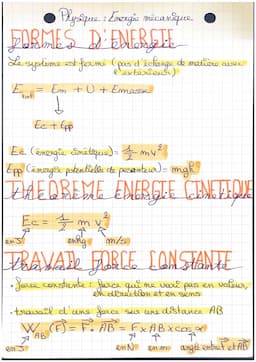 Physique : Energie mécanique
FORMES D'ENERGIE
Formes d'énergie
Le système est fermé (pas d'échange de matière avec
l'extérieur)
Etot = Em + U + Emasse
↓
Ec + Epp
Ec (énergie cinétique) = 1/2 mv²
Epp (énergie potentielle de pesanteur) = mgh
THEOREME ENERGIE CINETIQUE
théorème énergie cinétique
Ec = 1/2 m v²
en J en kg m/s
TRAVAIL FORCE CONSTANTE
travail force constante
• force constante : force qui ne varie pas en valeur,
en direction et en sens
• travail d'une force sur une distance AB
W AB (F) = F . AB = F x AB x cos α
en J en N en m angle entre F et AB